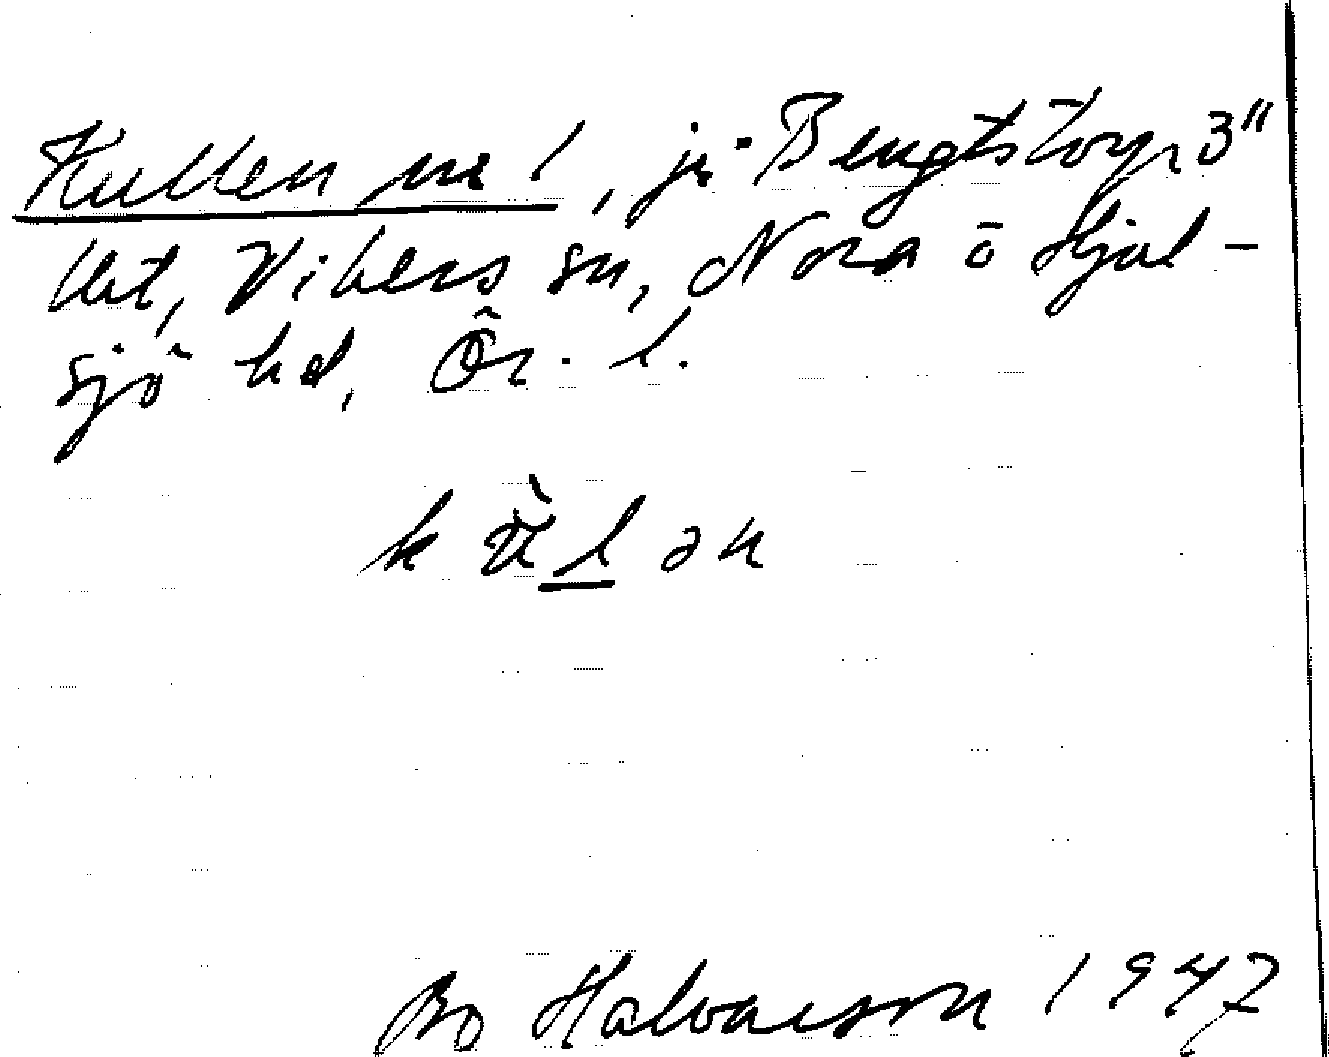 Kullen nr 1, på Bengtstorp 3"
lbt, Vikers sn, Nora o Hjul-
sjö hd, Ör. l.
kùlən
Bo Halvarson 1947